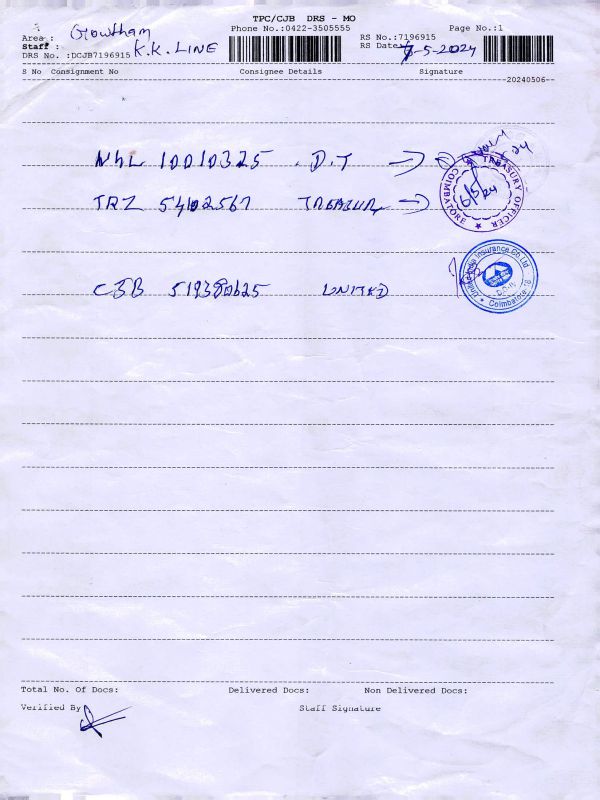 TPC/CJB DRS - MO
Phone No.:0422-3505555
RS No.:7196915
Page No.:1
Area : Gowtham
Staff : K.K. LINE
RS Date: -5-2024
DRS No. :DCJB7196915
S No Consignment No Consignee Details Signature
20240506
NHL 10010325 D.T
TRZ 5402567 TREASURY
TREASURY OFFICER
COIMBATORE
6/5/24
CJB 519380625 UNITED
United India Insurance Co Ltd
Coimbatore-18
Total No. Of Docs: Delivered Docs: Non Delivered Docs:
Verified By Staff Signature